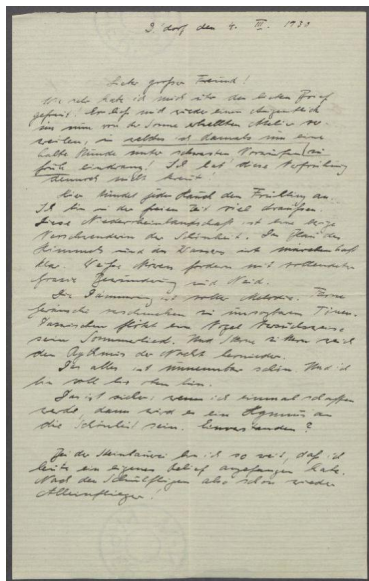 D.dorf den 4. III. 1930
Lieber großer Freund!
Wie sehr habe ich mich über den lieben Brief
gefreut! Er ließ mich wieder einen Augenblick
im von der Sonne erhellten Atelier ver-
weilen, in welches ich damals um eine
halbe Stunde unter schwarzen Vorhängen zu
früh eindrang! Ich hab' diese
dennoch nicht bereut!
Hier kündet jeder Hauch den Frühling an.
Ich bin in der freien Zeit viel draußen.
Diese Niederrheinlandschaft ist ein
Verschwenden der Schönheit. Im Glanz des
Himmels und des Wassers ist märchenhaft
klar. Weiße Möven fordern mit vollendeter
Grazie Bewunderung und Neid.
Die Dämmerung ist voller Melodie. Ferne
Geräusche verschwimmen in unsagbaren Tönen.
Dazwischen flötet ein Vogel
sein Sommerlied. Und Sterne zittern nach
dem Rythmus der Nacht hernieder.
Dies alles ist unnennbar schön. Und ich
bin voll bis oben hin.
Das ist sicher: wenn ich einmal schaffen
werde, dann wird es ein Hymnus an
die Schönheit sein. Einverstanden?
Bei der Steinhauerei bin ich so weit, daß ich
heute ein eigenes Relief angefangen habe.
Nach den Schulflügen also schon wieder
Alleinflieger!